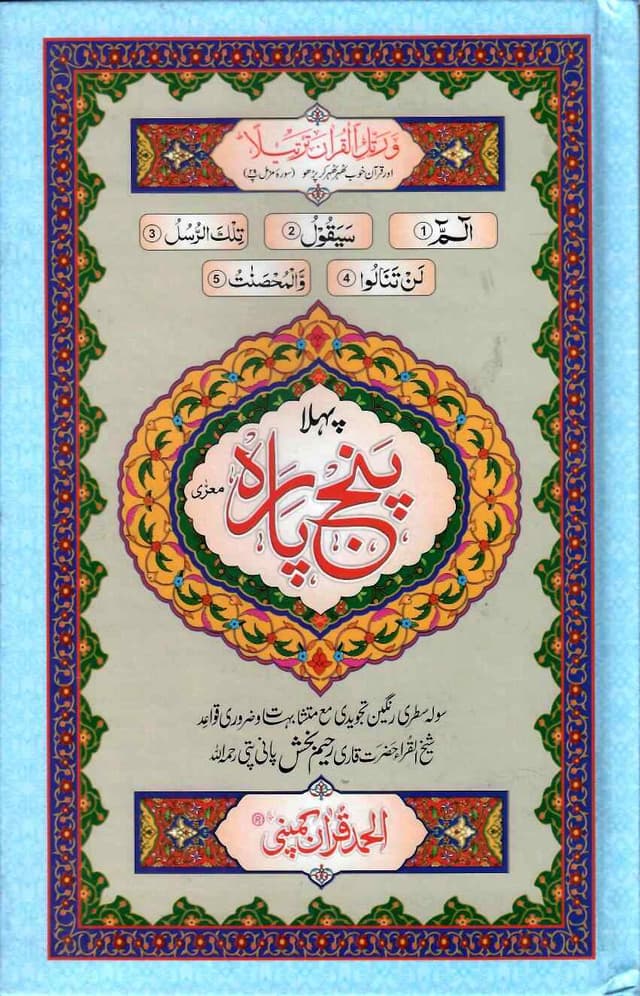 وَرَتِّلِ الْقُرْاٰنَ تَرْتِیْلًا
اور قرآن خوب ٹھہر ٹھہر کر پڑھو (سورۂ مزمل پ ۲۹)
الٓمّٓ 1 سَيَقُوْلُ 2 تِلْكَ الرُّسُلُ 3
لَنْ تَنَالُوا 4 وَالْمُحْصَنٰتُ 5
پہلا
پَنج پَارَہ
معرّٰی
سولہ سطری رنگین تجویدی مع متشابہت و ضروری قواعد
شیخ القراء حضرت قاری رحیم بخش پانی پتی رحمہ اللہ
الحمد قُرآن کمپنی ®